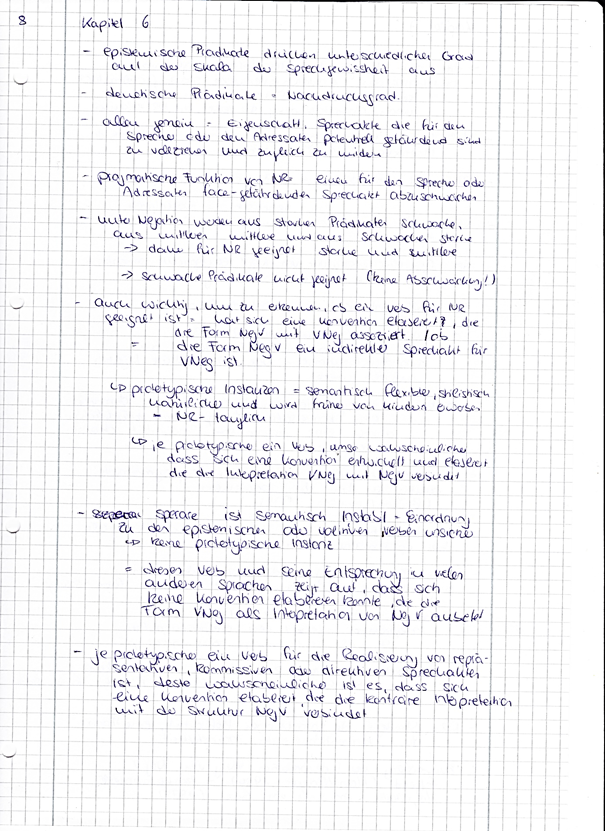 8 Kapitel 6
- epistemische Prädikate drücken unterschiedlichen Grad
auf der Skala der Sprechgewissheit aus
- deontische Prädikate = Nachdrucksgrad.
- allen gemein = Eigenschaft, Sprechakte die für den
Sprecher oder den Adressaten potentiell gefährdend sind
zu vollziehen und zugleich zu mildern
- pragmatische Funktion von NR einen für den Sprecher oder
Adressaten face-gefährdenden Sprechakt abzuschwächen
- unter Negation werden aus starken Prädikaten schwache,
aus mittleren mittlere und aus schwachen starke
→ daher für NR geeignet starke und mittlere
→ schwache Prädikate nicht geeignet (keine Abschwächung!)
- auch wichtig, um zu erkennen, ob ein Verb für NR
geeignet ist = hat sich eine Konvention etabliert?, die
die Form NegV mit VNeg assoziiert / ob
= die Form NegV ein indirekter Sprechakt für
VNeg ist.
↳ prototypische Instanzen = semantisch flexibler, stilistisch
natürlicher und wird früher von Kindern erworben
- NR-tauglich
↳ je prototypischer ein Verb, umso wahrscheinlicher
dass sich eine Konvention entwickelt und etabliert
die die Interpretation VNeg mit NegV verbindet
- sperare ist semantisch instabil - Einordnung
zu den epistemischen oder volitiven Verben unsicher
↳ keine prototypische Instanz
= dieses Verb und seine Entsprechung in vielen
anderen Sprachen zeigt auf, dass sich
keine Konvention etablieren konnte, die die
Form VNeg als Interpretation von NegV
- je prototypischer ein Verb für die Realisierung von reprä-
sentativen, kommissiven oder direktiven Sprechakten
ist, desto wahrscheinlicher ist es, dass sich
eine Konvention etabliert, die die konträre Interpretation
mit der Struktur NegV verbindet